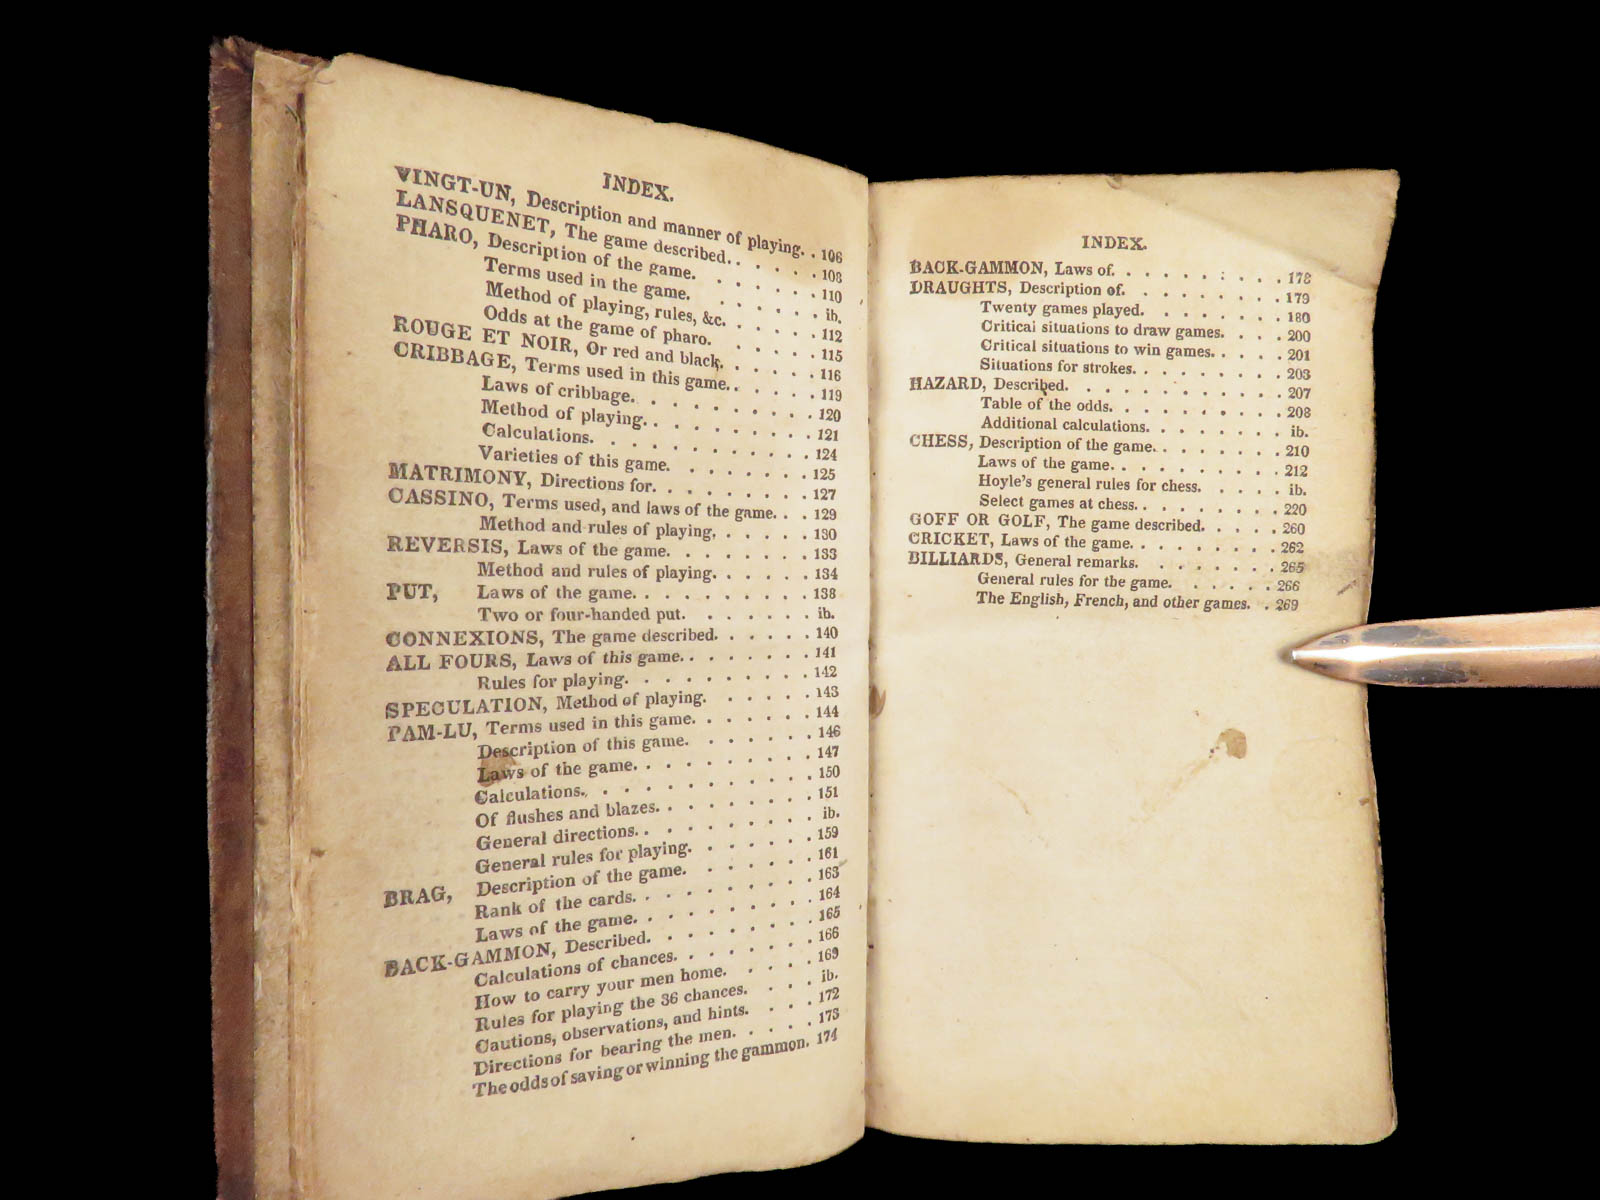 INDEX.
VINGT-UN, Description and manner of playing. . 106
LANSQUENET, The game described. . . . . . 108
PHARO, Description of the game. . . . . . . 110
Terms used in the game. . . . . . . ib.
Method of playing, rules, &c. . . . . . 112
Odds at the game of pharo. . . . . . 115
ROUGE ET NOIR, Or red and black. . . . . . 116
CRIBBAGE, Terms used in this game. . . . . . 119
Laws of cribbage. . . . . . . . . 120
Method of playing. . . . . . . . . 121
Calculations. . . . . . . . . . . 124
Varieties of this game. . . . . . . . 125
MATRIMONY, Directions for. . . . . . . . . 127
CASSINO, Terms used, and laws of the game. . . 129
Method and rules of playing. . . . . . 130
REVERSIS, Laws of the game. . . . . . . . 133
Method and rules of playing. . . . . . 134
PUT, Laws of the game. . . . . . . . . 138
Two or four-handed put. . . . . . . ib.
CONNEXIONS, The game described. . . . . . 140
ALL FOURS, Laws of this game. . . . . . . . 141
Rules for playing. . . . . . . . . . 142
SPECULATION, Method of playing. . . . . . 143
PAM-LU, Terms used in this game. . . . . . . 144
Description of this game. . . . . . . 146
Laws of the game. . . . . . . . . 147
Calculations. . . . . . . . . . . . 150
Of flushes and blazes. . . . . . . . . 151
General directions. . . . . . . . . . ib.
General rules for playing. . . . . . . 159
BRAG, Description of the game. . . . . . . 161
Rank of the cards. . . . . . . . . . 163
Laws of the game. . . . . . . . . . 164
BACK-GAMMON, Described. . . . . . . . . 165
Calculations of chances. . . . . . . . 166
How to carry your men home. . . . . 169
Rules for playing the 36 chances. . . . ib.
Cautions, observations, and hints. . . . 172
Directions for bearing the men. . . . . 173
The odds of saving or winning the gammon. 174
INDEX.
BACK-GAMMON, Laws of. . . . . . . . . . 178
DRAUGHTS, Description of. . . . . . . . . 179
Twenty games played. . . . . . . . 180
Critical situations to draw games. . . . 200
Critical situations to win games. . . . . 201
Situations for strokes. . . . . . . . . 203
HAZARD, Described. . . . . . . . . . . 207
Table of the odds. . . . . . . . . . 208
Additional calculations. . . . . . . . ib.
CHESS, Description of the game. . . . . . . . 210
Laws of the game. . . . . . . . . . 212
Hoyle's general rules for chess. . . . . ib.
Select games at chess. . . . . . . . . 220
GOFF OR GOLF, The game described. . . . . 260
CRICKET, Laws of the game. . . . . . . . . 262
BILLIARDS, General remarks. . . . . . . . 265
General rules for the game. . . . . . 266
The English, French, and other games. . . 269